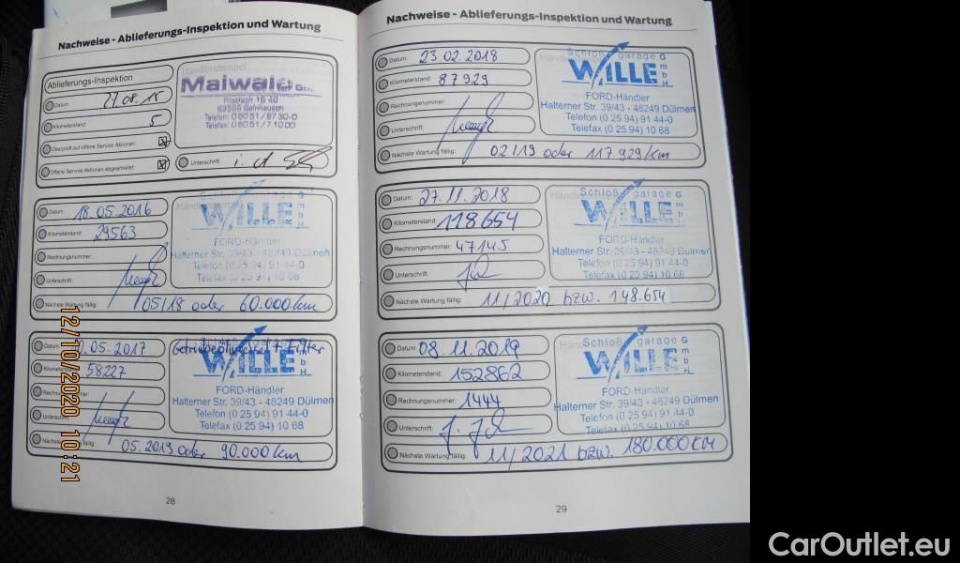 Nachweise - Ablieferungs-Inspektion und Wartung
Ablieferungs-Inspektion
Datum: 27.08.15
Kilometerstand: 5
Überprüft auf offene Service Aktionen:
Offene Service Aktionen abgearbeitet:
Händlerstempel
Maiwald
63589 Gelnhausen
Telefon: 06051/8730-0
Telefax: 06051/71000
Unterschrift:
Datum: 18.05.2016
Kilometerstand: 29563
Rechnungsnummer:
Unterschrift:
WILLE GmbH
FORD-Händler
Halterner Str. 39/43 - 48249 Dülmen
Telefon (0 25 94) 91 44-0
Telefax (0 25 94) 10 68
Nächste Wartung fällig: 05/18 oder 60.000km
Datum: .05.2017
Kilometerstand: 58227
Rechnungsnummer:
Unterschrift:
WILLE GmbH
FORD-Händler
Halterner Str. 39/43 - 48249 Dülmen
Telefon (0 25 94) 91 44-0
Telefax (0 25 94) 10 68
Nächste Wartung fällig: 05.2019 oder 90.000km
28
Nachweise - Ablieferungs-Inspektion und Wartung
Datum: 23.02.2018
Kilometerstand: 87929
Rechnungsnummer:
Unterschrift:
Schloßgarage
WILLE GmbH
FORD-Händler
Halterner Str. 39/43 - 48249 Dülmen
Telefon (0 25 94) 91 44-0
Telefax (0 25 94) 10 68
Nächste Wartung fällig: 02/19 oder 117.929km
Datum: 27.11.2018
Kilometerstand: 118654
Rechnungsnummer: 47145
Unterschrift:
Schloßgarage
WILLE GmbH
FORD-Händler
Halterner Str. 39/43 - 48249 Dülmen
Telefon (0 25 94) 91 44-0
Telefax (0 25 94) 10 68
Nächste Wartung fällig: 11/2020 bzw. 148.654
Datum: 08.11.2019
Kilometerstand: 152862
Rechnungsnummer: 1444
Unterschrift:
Schloßgarage
WILLE GmbH
FORD-Händler
Halterner Str. 39/43 - 48249 Dülmen
Telefon (0 25 94) 91 44-0
Telefax (0 25 94) 10 68
Nächste Wartung fällig: 11/2021 bzw. 180.000KM
29
12/10/2020 10:21
CarOutlet.eu